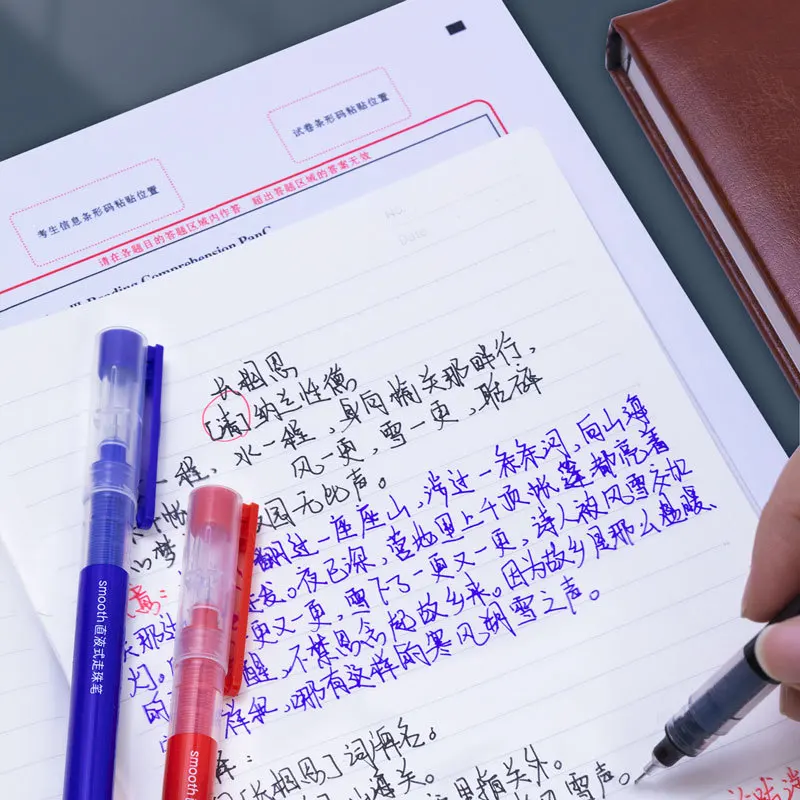 试卷条形码粘贴位置
考生信息条形码粘贴位置
请在各题目的答题区域内作答，超出答题区域的答案无效
Reading Comprehension
No.
Date
长相思
[清]纳兰性德
一程，水一程，身向榆关那畔行，
风一更，雪一更，聒碎
故园无此声。
翻过一座座山，涉过一条条河，向山海
夜已深，营地里上千顶帐篷都亮着
灯。 更又一更，雪下了一更又一更，诗人被风雪交加
醒，不禁思念起故乡来。因为故乡是那么温暖、
的 祥和，哪有这样的寒风朔雪之声。
[长相思]词牌名。
山海关。
风雪声。
smooth 直液式走珠笔
smooth